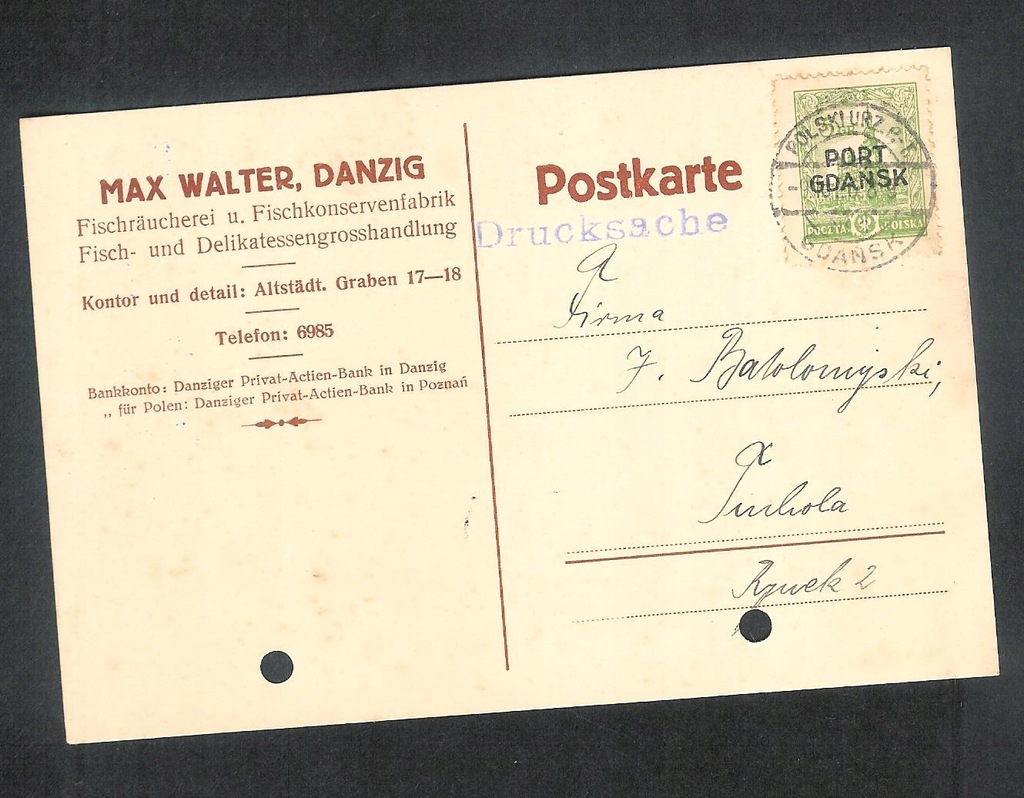 MAX WALTER, DANZIG
Fischräucherei u. Fischkonservenfabrik
Fisch- und Delikatessengrosshandlung
Kontor und detail: Altstädt. Graben 17—18
Telefon: 6985
Bankkonto: Danziger Privat-Actien-Bank in Danzig
„ für Polen: Danziger Privat-Actien-Bank in Poznań
Postkarte
Drucksache
POLSKI URZ. P.T.
PORT
GDAŃSK
POCZTA POLSKA
GDAŃSK
Firma
J. Batolomijski,
Tuchola
Rynek 2